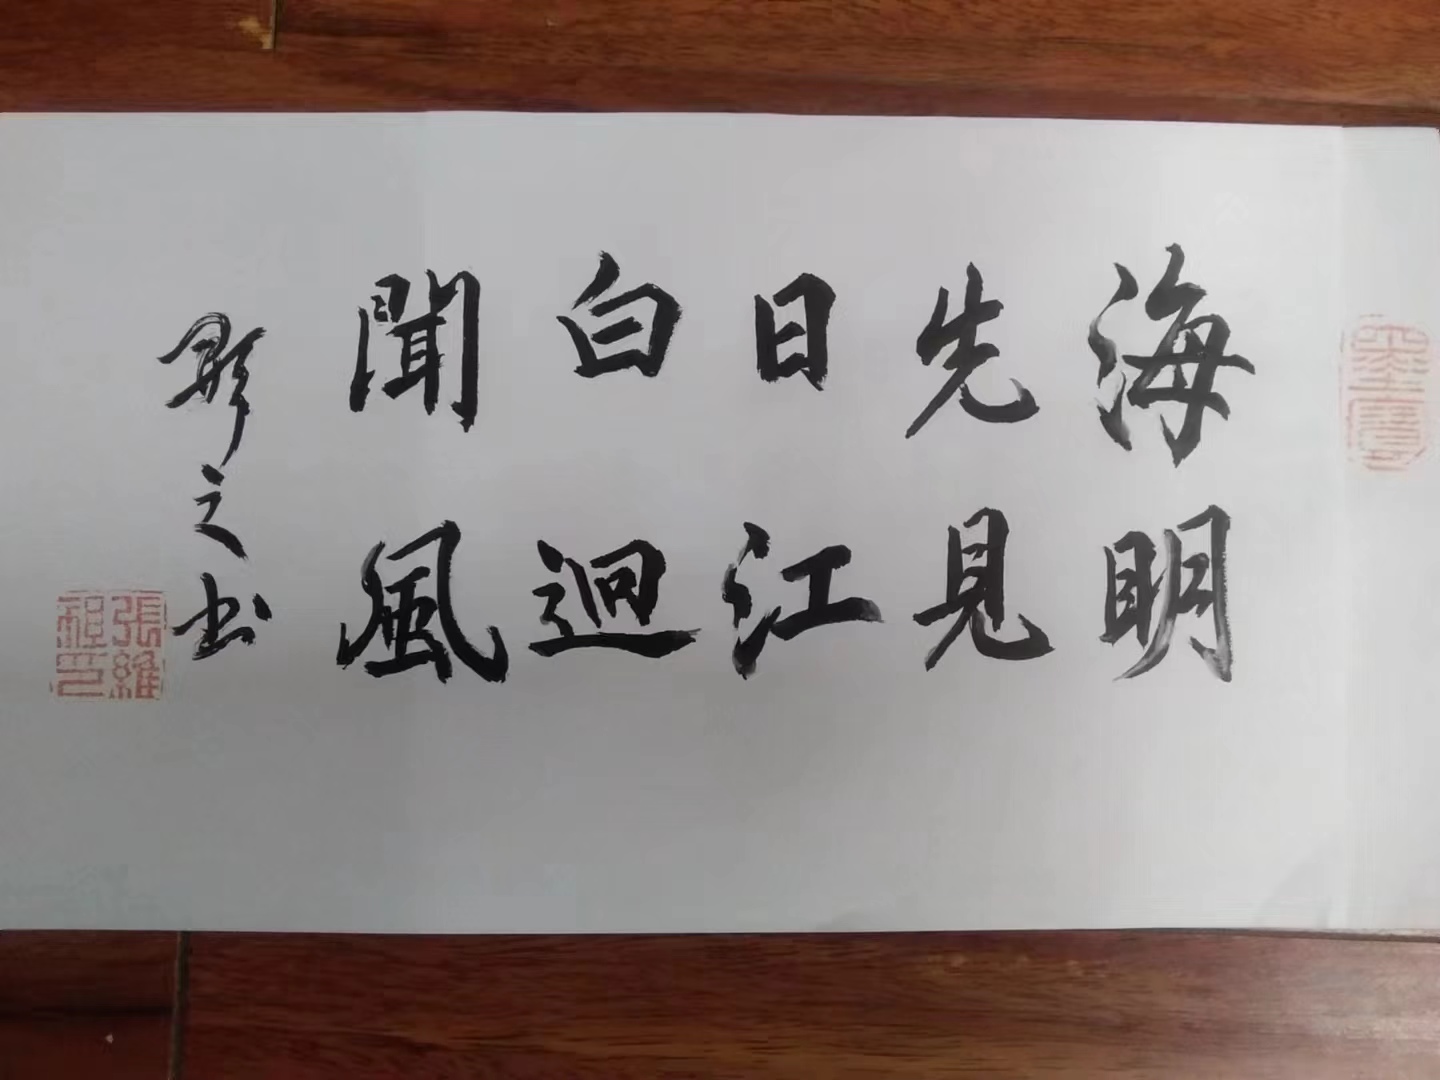 墨寶
海明
先見
日江
白迥
聞風
之书
張維祖印